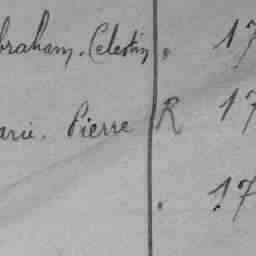 braham. Celestin . 17
arie. Pierre R 17
. 17